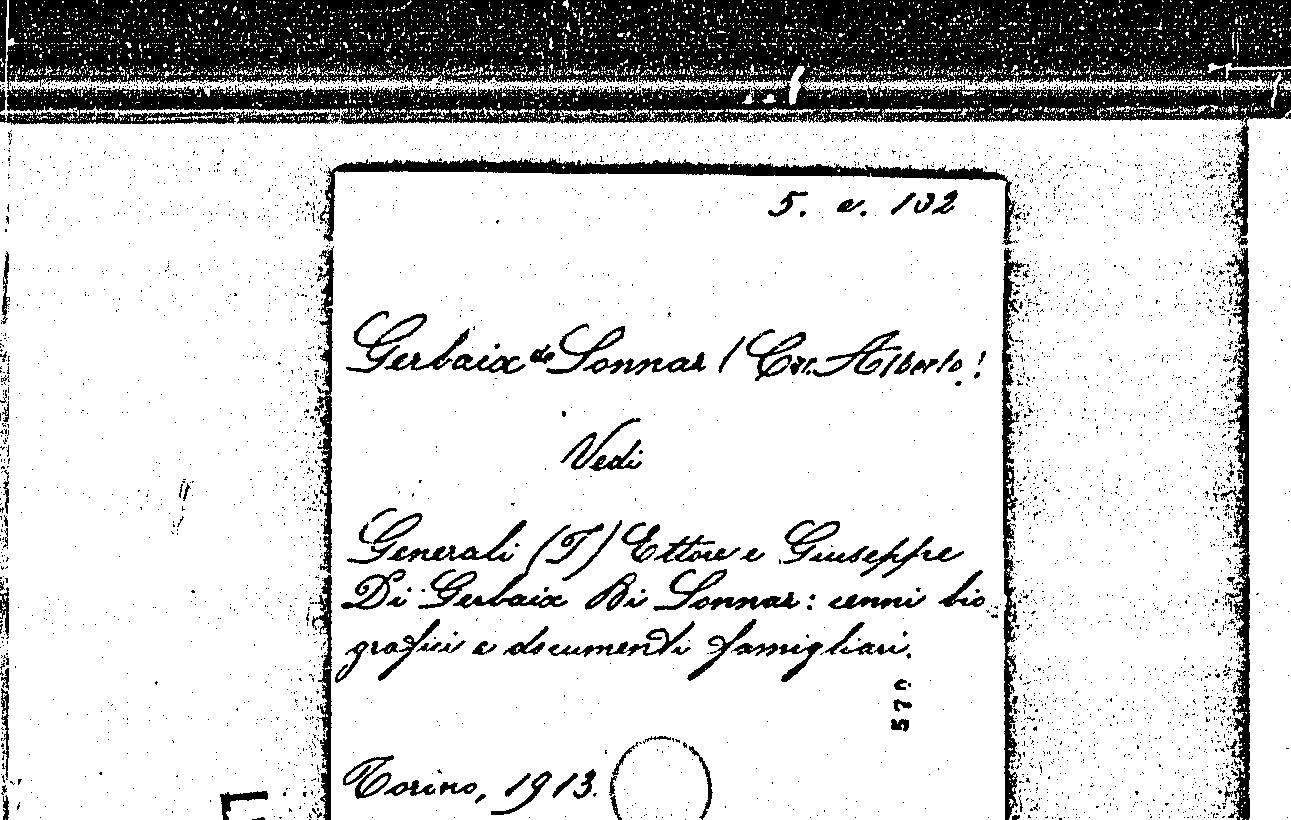 5. a. 102
Gerbaix de Sonnaz (Car. Alberto.)
Vedi
Generali (I) Ettore e Giuseppe
Di Gerbaix Di Sonnaz: cenni bio
grafici e documenti famigliari.
579
Torino, 1913.